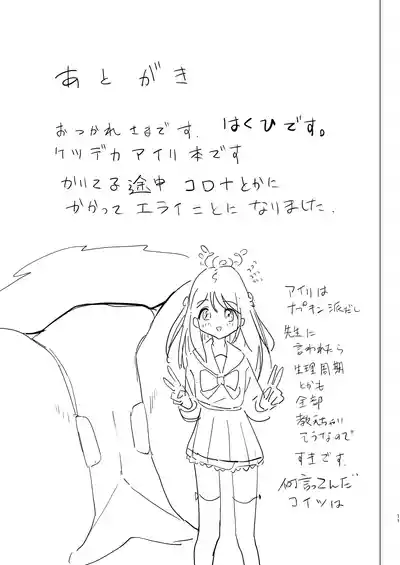 あとがき
おつかれさまです. はくひです。
ケツデカアイリ本です
かいてる途中 コロナとかに
かかって エライことに なりました.
アイリは
ナプキン派だし
先生に
言われたら
生理周期
とかも
全部
教えちゃい
そうなので
すきです.
何言ってんだ
コイツは